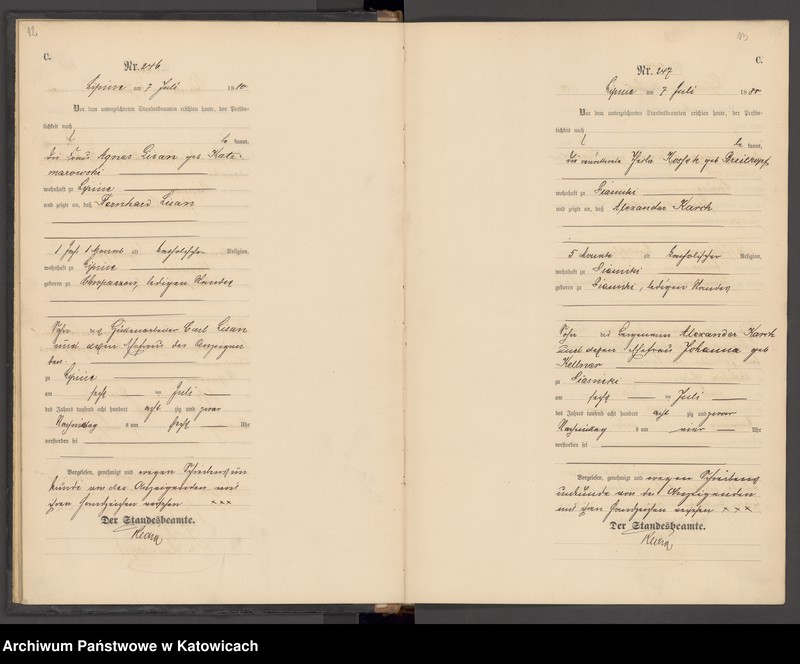 12
C.
Nr. 246
Lipine am 7 Juli 1880
Vor dem unterzeichneten Standesbeamten erschien heute, der Persön-
lichkeit nach
be kannt,
die Frau Agnes Lisan geb Katz-
marowski
wohnhaft zu Lipine
und zeigte an, daß Bernhard Lisan
1 Jahr 1 Monat alt katholischer Religion,
wohnhaft zu Lipine
geboren zu ledigen Standes
Sohn des Hüttenarbeiter Carl Lisan
und dessen Ehefrau der Anzeigen
den
zu Lipine
am sechs ten Juli
des Jahres tausend acht hundert acht zig und zwar
Nachmittag s um sechs Uhr
verstorben sei
Vorgelesen, genehmigt und wegen Schreibensun
kunde von der Anzeigenden mit
ihren Handzeichen versehen × × ×
Der Standesbeamte.
13
C.
Nr. 247
Lipine am 7 Juli 1880
Vor dem unterzeichneten Standesbeamten erschien heute, der Persön-
lichkeit nach
be kannt,
die verwittwete geb Breitkopf
wohnhaft zu
und zeigte an, daß Alexander Karch
5 Monate alt katholischer Religion,
wohnhaft zu
geboren zu , ledigen Standes
Sohn des Bergmann Alexander Karch
und dessen Ehefrau Johanna geb
Kellner
zu
am sechs ten Juli
des Jahres tausend acht hundert acht zig und zwar
Nachmittag s um vier Uhr
verstorben sei
Vorgelesen, genehmigt und wegen Schreibens
unkunde von der Anzeigenden
mit ihren Handzeichen versehen × × ×
Der Standesbeamte.
Archiwum Państwowe w Katowicach